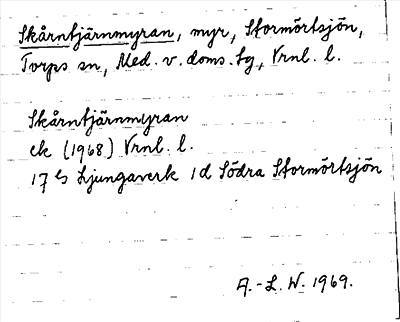 Skårntjärnmyran, myr, Stormörtsjön,
Torps sn, Med. v. doms. tg, Vrnl. l.
Skårntjärnmyran
ek (1968) Vrnl. l.
17 Ljungaverk 1d Södra Stormörtsjön
A.-L. W. 1969.